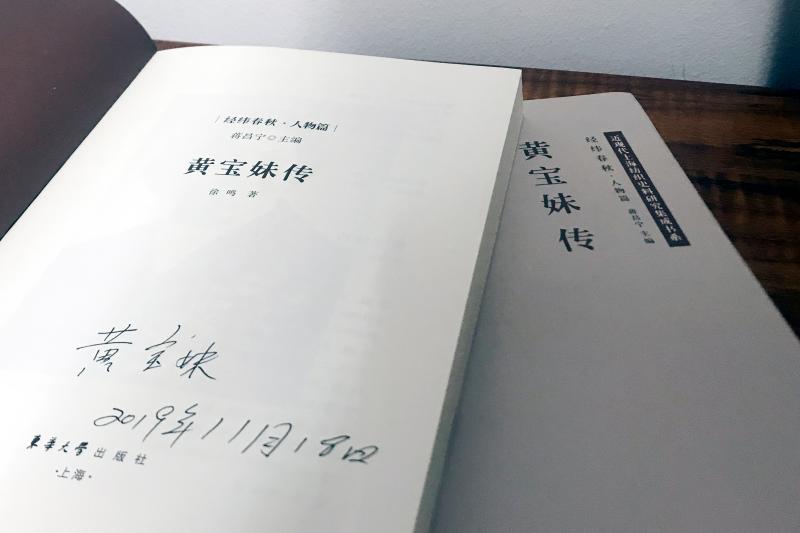 经纬春秋·人物篇
蒋昌宁○主编
黄宝妹传
徐鸣 著
黄宝妹
2019年11月18日
東華大學出版社
·上海·
近现代上海纺织史料研究集成书系
经纬春秋·人物篇 蒋昌宁 主编
黄宝妹传